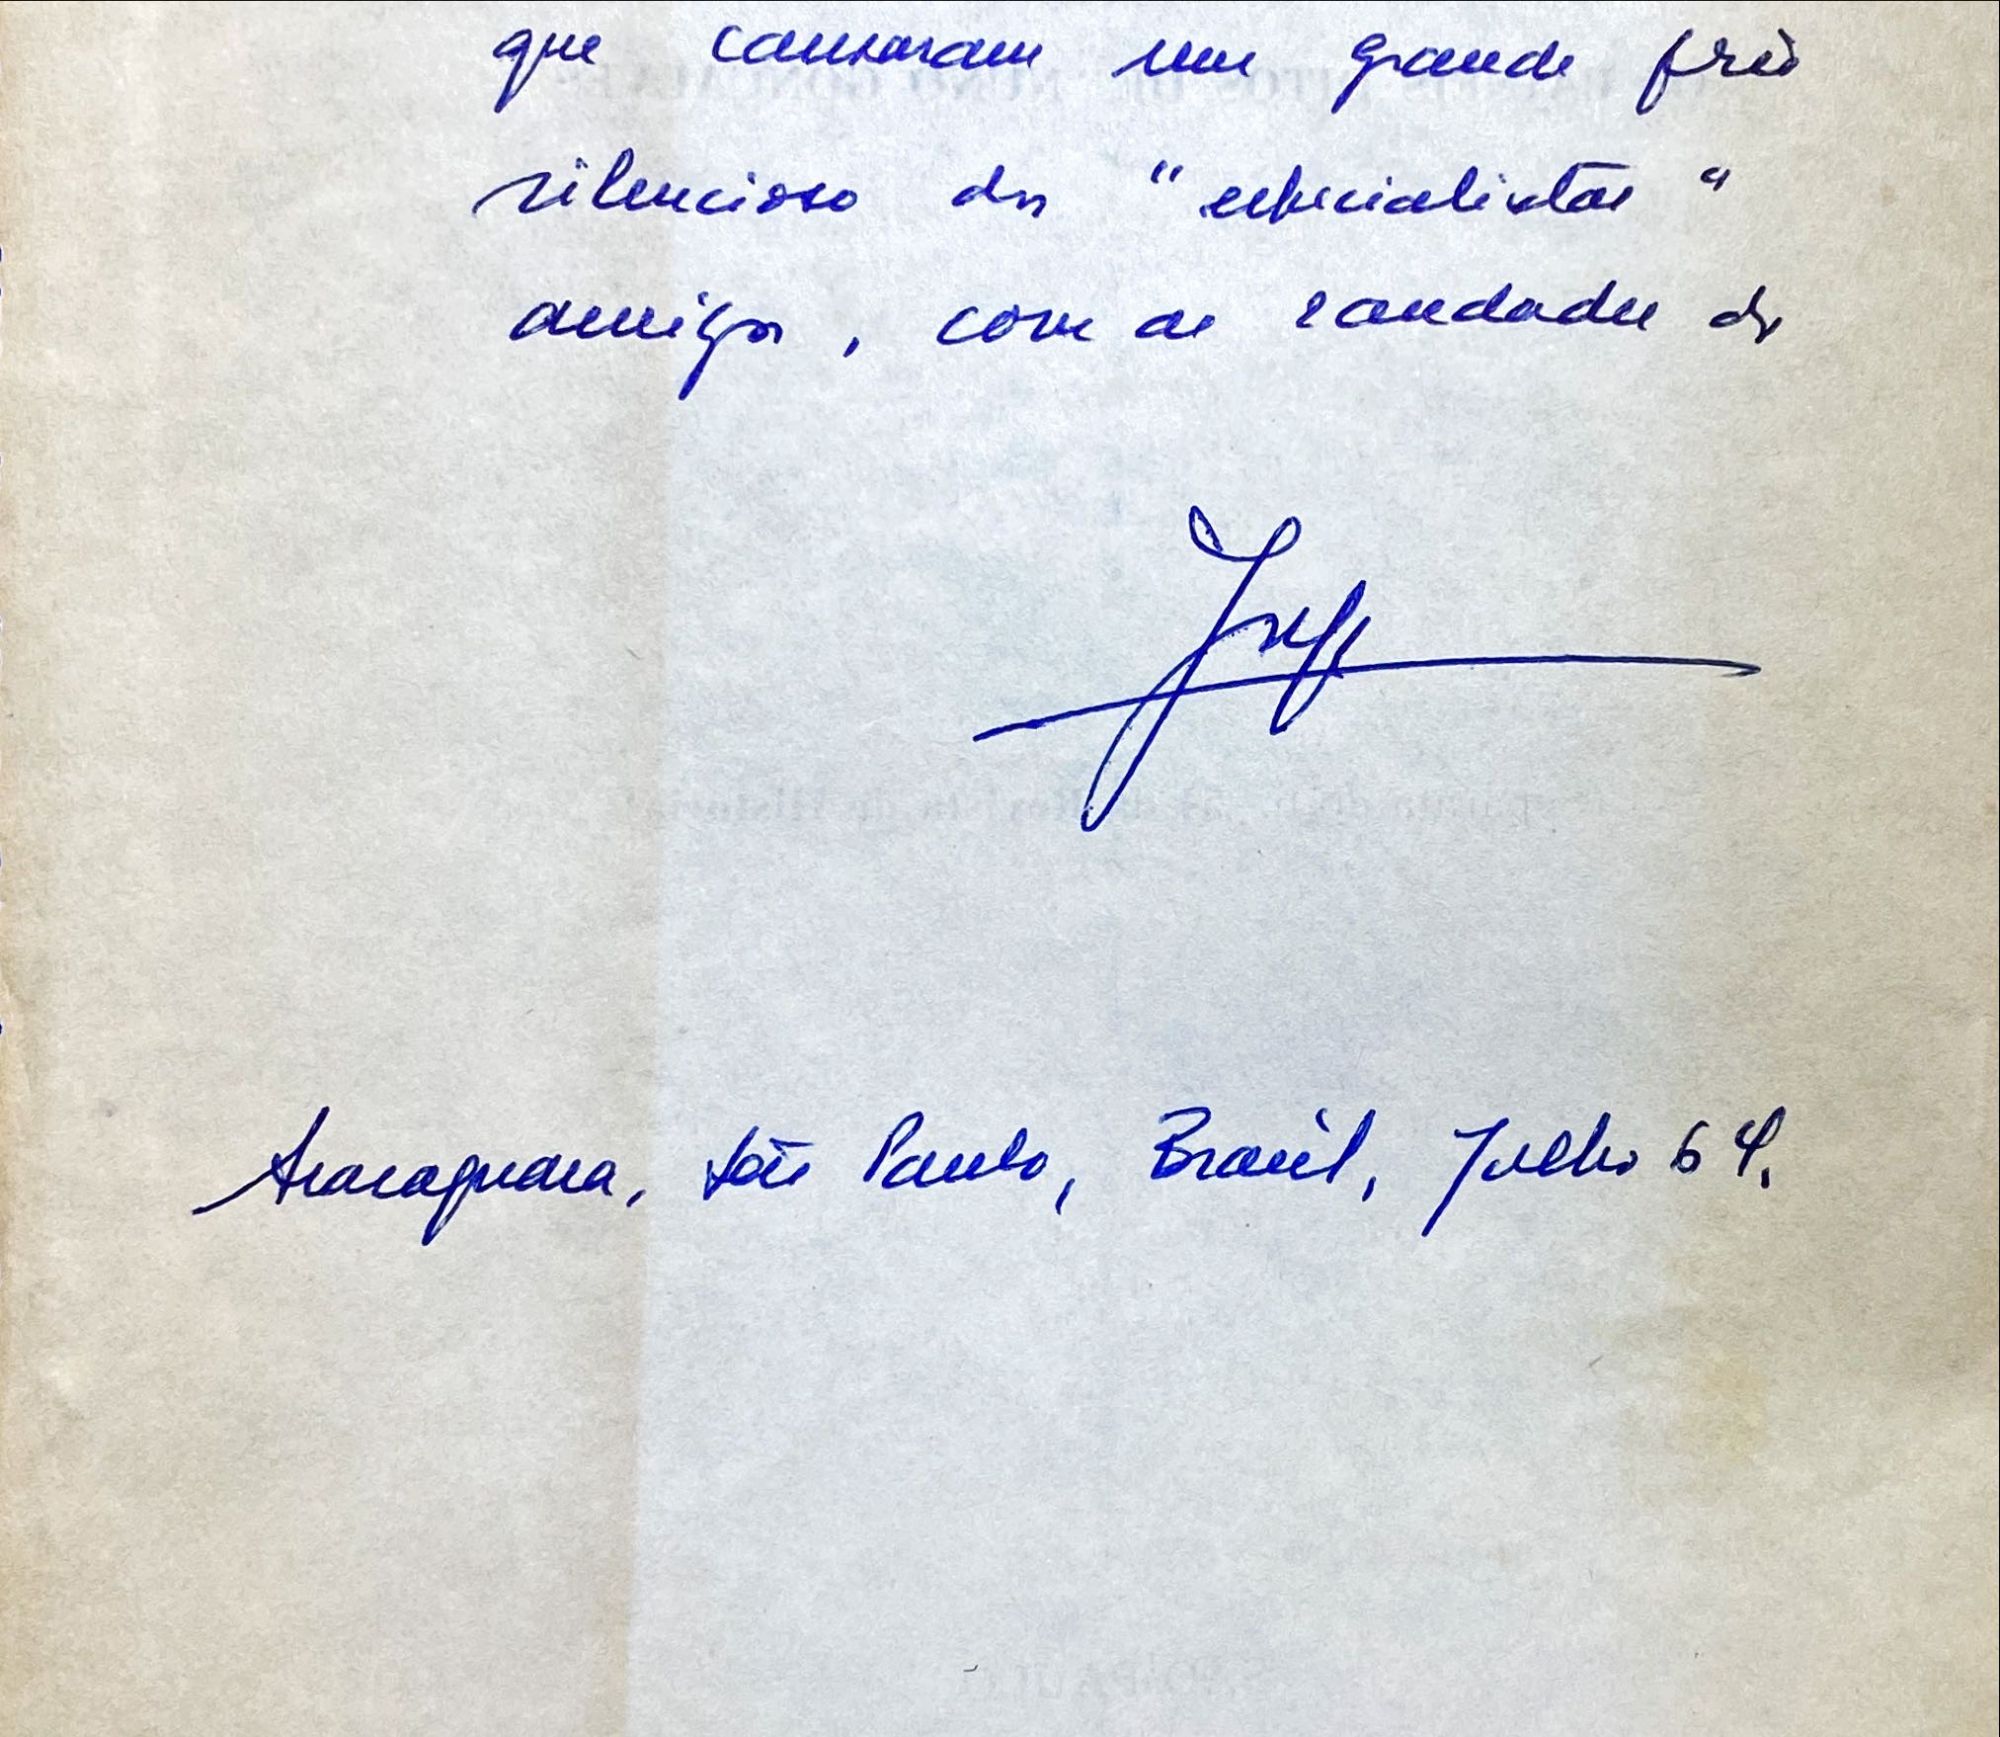 que causaram um grande frio
silencioso dos "especialistas"
amigos, com as saudades do
Araraquara, São Paulo, Brasil, Julho 64.